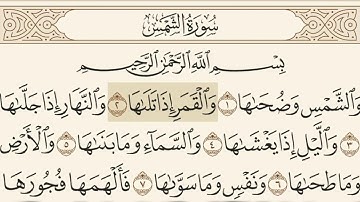 سُورَةُ الشَّمْسِ
بِسْمِ ٱللَّهِ ٱلرَّحْمَٰنِ ٱلرَّحِيمِ
وَٱلشَّمْسِ وَضُحَىٰهَا ١ وَٱلْقَمَرِ إِذَا تَلَىٰهَا ٢ وَٱلنَّهَارِ إِذَا جَلَّىٰهَا
٣ وَٱلَّيْلِ إِذَا يَغْشَىٰهَا ٤ وَٱلسَّمَآءِ وَمَا بَنَىٰهَا ٥ وَٱلْأَرْضِ
وَمَا طَحَىٰهَا ٦ وَنَفْسٍ وَمَا سَوَّىٰهَا ٧ فَأَلْهَمَهَا فُجُورَهَا